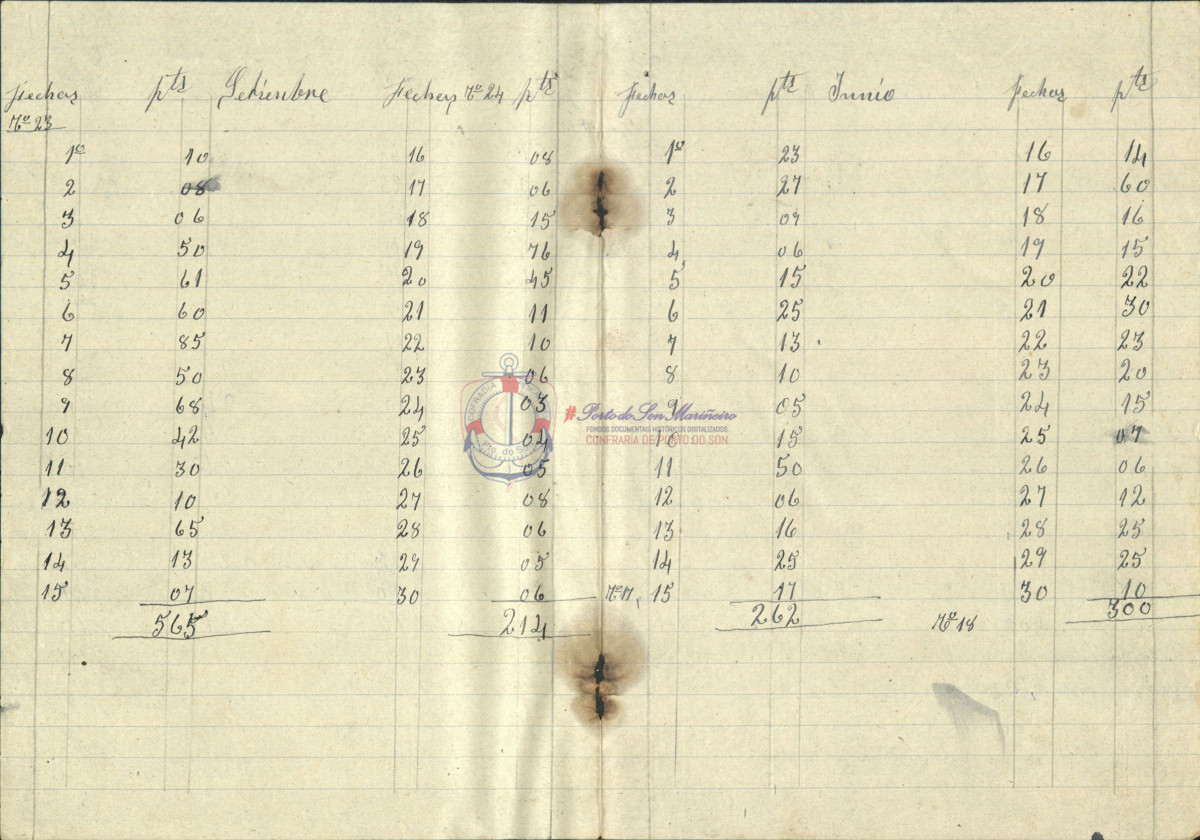 Fechas pts Setienbre Fechas Nº 24 pts
Nº 23
1º 10 16 08
2 08 17 06
3 06 18 15
4 50 19 76
5 61 20 45
6 60 21 11
7 85 22 10
8 50 23 06
9 68 24 03
10 42 25 04
11 30 26 05
12 10 27 08
13 65 28 06
14 13 29 05
15 07 30 06
565 214
Fechas pts Junio Fechas pts
1º 23 16 14
2 27 17 60
3 09 18 16
4 06 19 15
5 15 20 22
6 25 21 30
7 13 22 23
8 10 23 20
9 05 24 15
10 15 25 07
11 50 26 06
12 06 27 12
13 16 28 25
14 25 29 25
Nº 17, 15 17 30 10
262 Nº 18 300
COFRADIA
Pto. do Son
#Porto do Son Mariñeiro
FONDOS DOCUMENTAIS HISTÓRICOS DIGITALIZADOS
CONFRARÍA DE PORTO DO SON